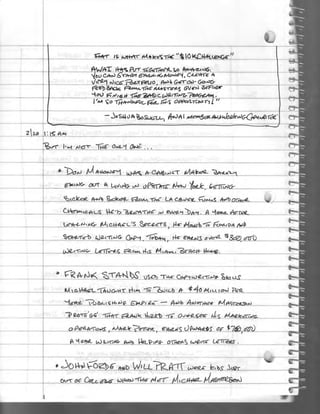 THAT IS WHAT MAKES THE "$10K CHALLENGE"
AWAI HAS PUT TOGETHER SO AMAZING.
YOU CAN GET MONEY, CREATE A
VERY NICE PORTFOLIO, AND GET ON-GOING
FEEDBACK FROM THE MASTERS EVEN BEFORE
YOU FINISH THE BASIC WRITING PROGRAM.
I'M SO THANKFUL FOR THIS OPPORTUNITY!"
- JOSHUA AWAI MEMBER AND
1:15 AM
BUT I'M NOT THE ONLY ONE...
• DON MAHONEY WAS A CABINET MAKER BARELY
EKING OUT A LIVING IN UPSTATE NEW YORK, GETTING
SICKER AND SICKER FROM THE LACQUER FUMES AND OTHER
CHEMICALS HE'D BREATHE IN EVERY DAY. A YEAR AFTER
LEARNING MICHAEL'S SECRETS, HE MOVED TO FLORIDA AND
STARTED WRITING COPY. TODAY, HE EARNS OVER
WRITING LETTERS FROM HIS MIAMI BEACH HOME.
• FRANK STANDS USED THE COPYWRITING SKILLS
MICHAEL TAUGHT HIM TO BUILD A MILLION PER
YEAR PUBLISHING EMPIRE - AND ANOTHER MASTERSON
PROTÉGÉ THAT FRANK HIRED TO OVERSEE HIS MARKETING
OPERATIONS, MARK EARNS UPWARDS OF
A YEAR WRITING AND HELPING OTHERS WRITE LETTERS.
• JOHN FORDE AND WILL PRATT WERE KIDS JUST
OUT OF COLLEGE WHEN THEY MET MICHAEL MASTERSON